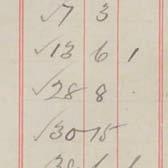 √7 3
√13 6 1
√28 8 .
√30 15